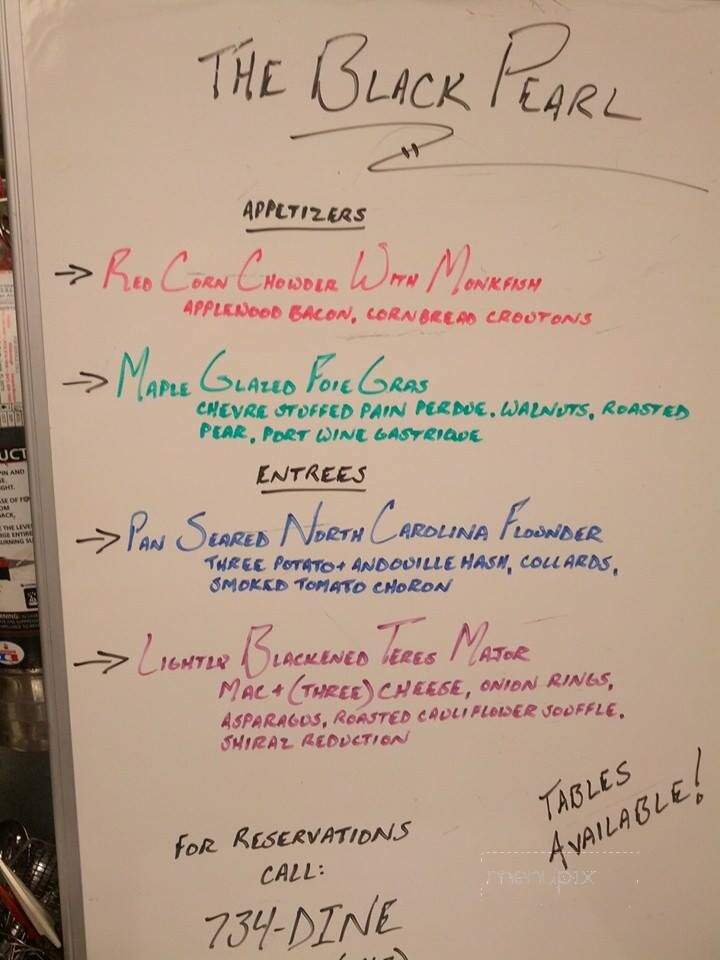 THE BLACK PEARL
APPETIZERS
→ RED CORN CHOWDER WITH MONKFISH
APPLEWOOD BACON, CORNBREAD CROUTONS
→ MAPLE GLAZED FOIE GRAS
CHEVRE STUFFED PAIN PERDUE, WALNUTS, ROASTED
PEAR, PORT WINE GASTRIQUE
ENTREES
→ PAN SEARED NORTH CAROLINA FLOUNDER
THREE POTATO + ANDOUILLE HASH, COLLARDS,
SMOKED TOMATO CHORON
→ LIGHTLY BLACKENED TERES MAJOR
MAC + (THREE) CHEESE, ONION RINGS,
ASPARAGUS, ROASTED CAULIFLOWER SOUFFLE,
SHIRAZ REDUCTION
TABLES
AVAILABLE!
FOR RESERVATIONS
CALL:
734-DINE
menupix
UCT